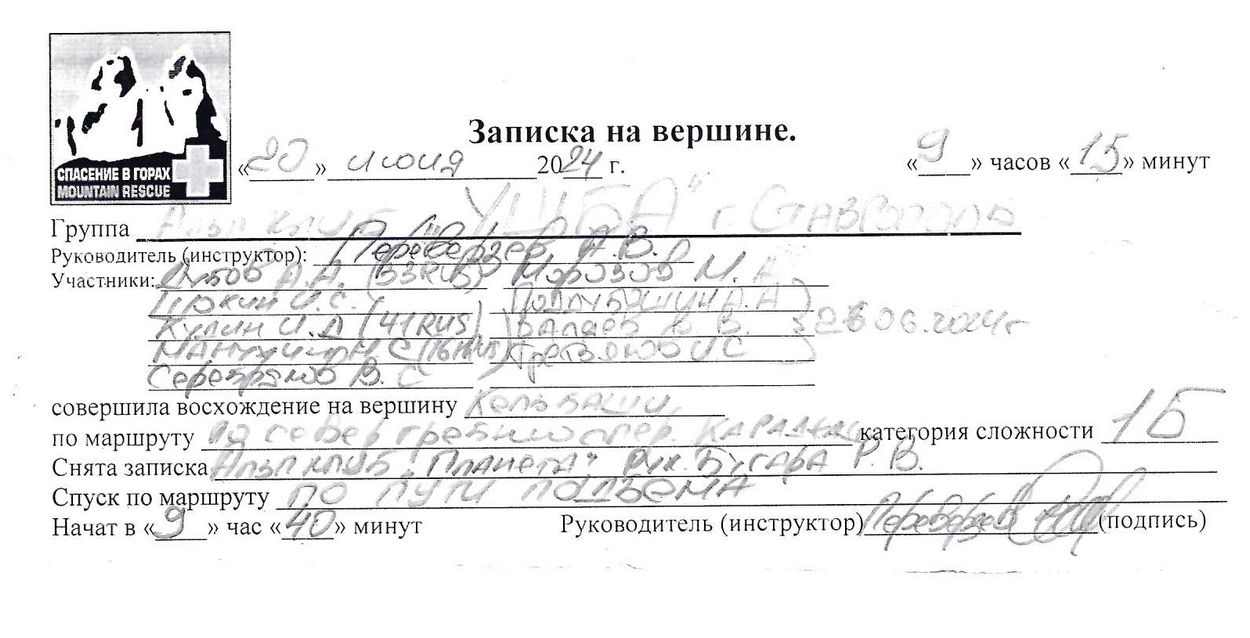 СПАСЕНИЕ В ГОРАХ
MOUNTAIN RESCUE
Записка на вершине.
«20» июня 2024 г. «9» часов «15» минут
Группа Альпклуб "УШБА" г. Ставрополь
Руководитель (инструктор): Переверзев А.В.
Участники: А.А. (33RUS) Морозов М.А
И.С. А.А
Кулин И.Д (41RUS) В. 06.2024г
И С
Серебряков В. С
совершила восхождение на вершину Кельбаши
по маршруту по север гребню с пер. категория сложности 1Б
Снята записка Альпклуб "Планета" рук. Бугара Р.В.
Спуск по маршруту по пути подъема
Начат в «9» час «40» минут Руководитель (инструктор) Переверзев (подпись)